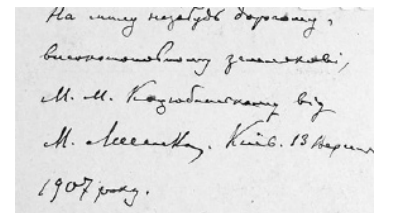 На милу незабудь дорогому,
високоповажному землякові,
М. М. Коцюбинському від
М. Лисенка. Київ. 13 Вересня
1907 року.